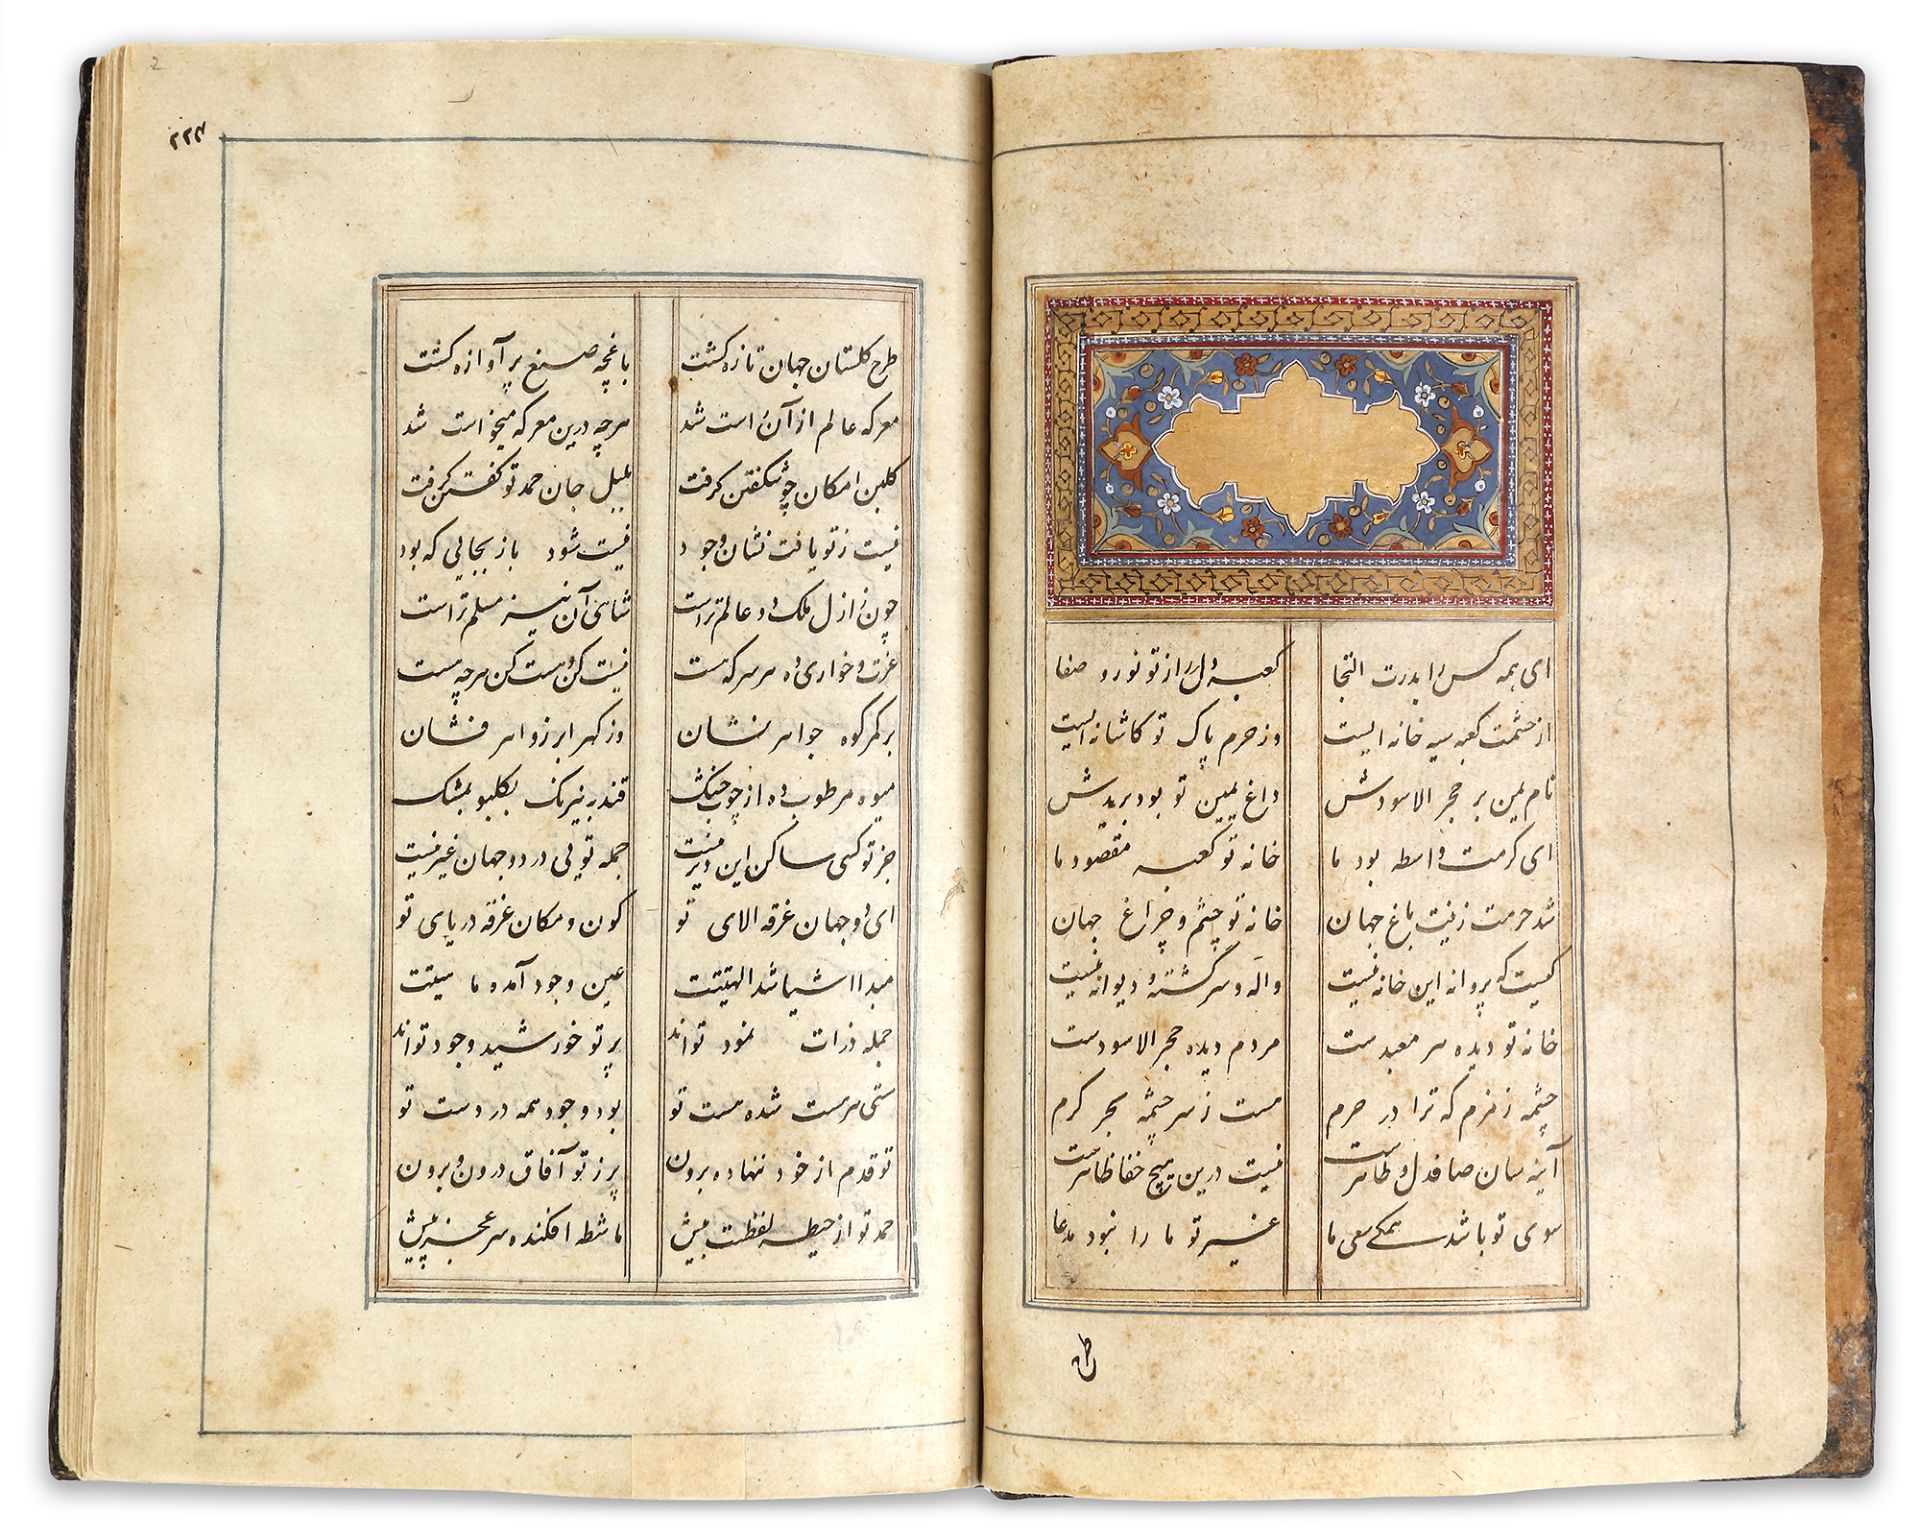 ای همه کس را بدرت التجا کعبه دل را از تو نور و صفا
از حشمت کعبه سیه خانه ایست وز حرم پاک تو کاشانه ایست
نام یمن بر حجر الاسودش داغ یمین تو بود بر یدش
ای کرمت واسطه بود ما خانه تو کعبه مقصود ما
شد حرمت زینت باغ جهان خانه تو چشم و چراغ جهان
کیست که پروانه این خانه نیست واله و سرکشته و دیوانه نیست
خانه تو دیده هر معبدست مردم دیده حجر الاسودست
چشمه زمزم که ترا در حرم هست ز سر چشمه بحر کرم
آینه سان صافدل و طاهرست نیست درین هیچ خفا ظاهرست
سوی تو باشد همکی سعی ما غیر تو ما را نبود مدعا
طرح
2
طرح کلستان جهان تازه کشت باغچه صنع پر آوازه کشت
معرکه عالم از آن است شد هرچه درین معرکه میخواست شد
کلبن امکان چو شکفتن کرفت بلبل جان حمد تو کفتن کرفت
نیست ز تو یافت نشان وجود نیست شود باز بجایی که بود
چون ز ازل ملک دو عالم تراست شاهی آن نیز مسلم تراست
عزت و خواری ده هر سر که هست نیست کن و هست کن هرچه هست
بر کمر کوه جواهر نشان وز کهر ابر زواهر فشان
میوه مرطوب ده از چوب خشک
جز تو کسی ساکن این دیر نیست جمله تویی در دو جهان غیر نیست
ای دو جهان غرقه الای تو کون و مکان غرقه دریای تو
مبدا اشیا شد الهیتت عین وجود آمده ماهیتت
جمله ذرات نمود تواند پرتو خورشید وجود تواند
هستی هر هست شده هست تو بود وجود همه در دست تو
تو قدم از خود ننهاده برون پر ز تو آفاق درون و برون
حمد تو از حیطه لفظست بیش ماشطه افکنده سر عجز پیش